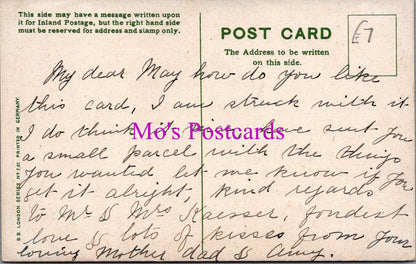 This side may have a message written upon
it for Inland Postage, but the right hand side
must be reserved for address and stamp only.
POST CARD
The Address to be written
on this side.
£7
B B. LONDON SERIES Nº E61 PRINTED IN GERMANY.
My dear May how do you like
this card, I am struck with it
I do think it nice. have sent you
a small parcel with the things
you wanted let me know if you
get it alright kind regards
to Mr & Mrs Kaesser, fondest
love & lots of kisses from your
loving Mother dad & Amy.
Mo's Postcards